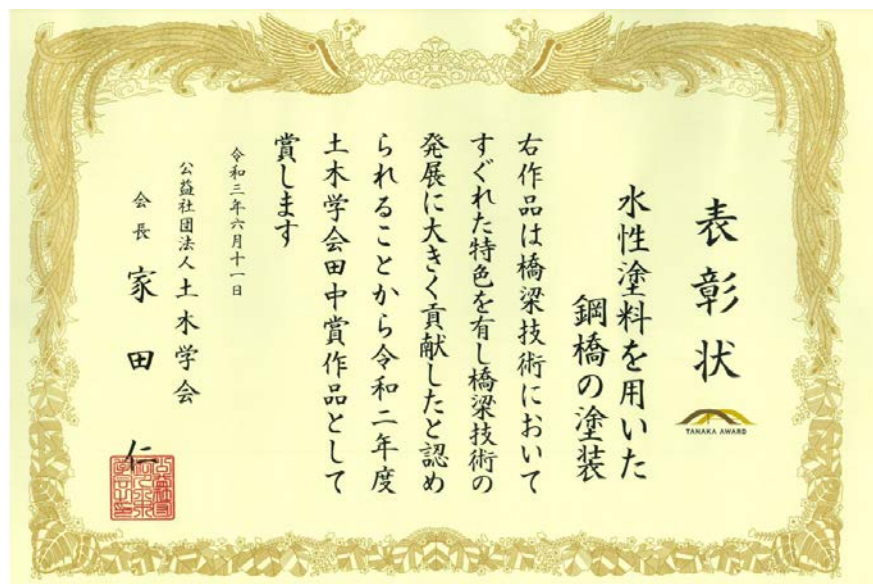 表彰状
TANAKA AWARD
水性塗料を用いた
鋼橋の塗装
右作品は橋梁技術において
すぐれた特色を有し橋梁技術の
発展に大きく貢献したと認め
られることから令和二年度
土木学会田中賞作品として
賞します
令和三年六月十一日
公益社団法人土木学会
会長 家田 仁